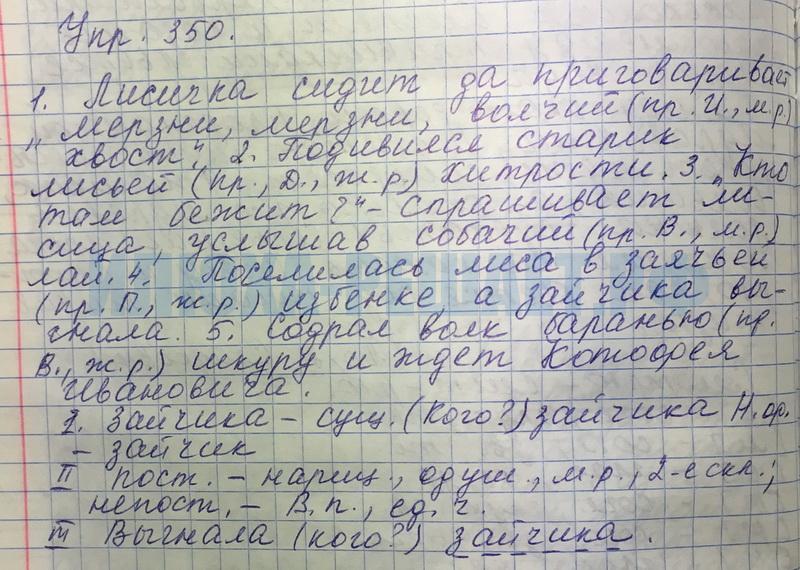 Упр. 350.
1. Лисичка сидит да приговаривает
„мерзни, мерзни, волчий (пр. И., м.р.)
хвост". 2. Подивился старик
лисьей (пр., Д., ж.р.) хитрости. 3. „Кто
там бежит?" - спрашивает ли-
сица, услышав собачий (пр. В., м.р.)
лай. 4. Поселилась лиса в заячьей
(пр. П., ж.р.) избенке, а зайчика вы-
гнала. 5. Содрал волк баранью (пр.
В., ж.р.) шкуру и ждет Котофея
Ивановича.
I. Зайчика – сущ. (Кого?) зайчика Н. ф.
– зайчик
II пост. – нариц., одуш., м.р., 2-е скл.;
непост. – В. п., ед. ч.
III Выгнала (кого?) зайчика.